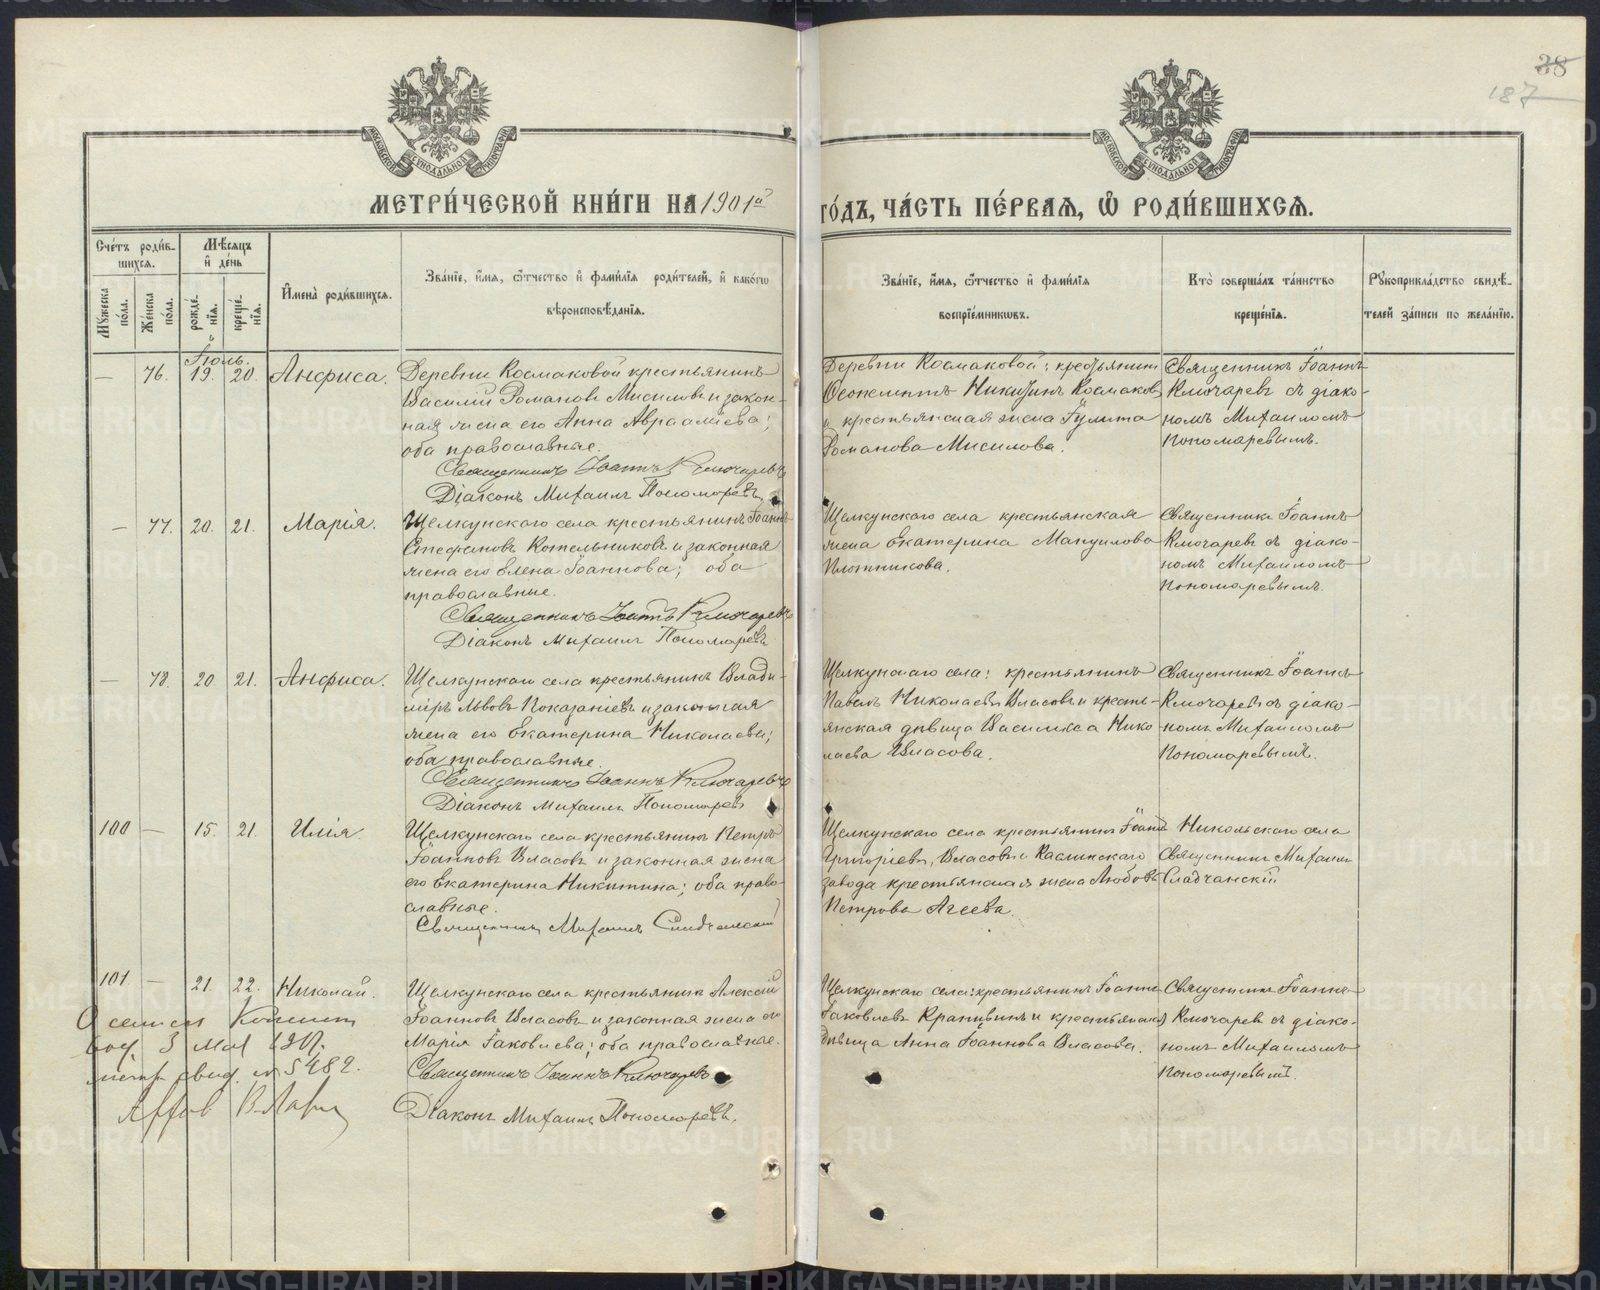 38
187
МЕТРИ́ЧЕСКОЙ КНИ́ГИ НА 1901й ГО́ДЪ, ЧА́СТЬ ПЕ́РВАЯ, Ѽ РОДИ́ВШИХСЯ.
Сче́тъ роди́в-
шихся.
Му́жеска по́ла.
Же́нска по́ла.
Мѣ́сяцъ
и҆ де́нь
рожде́нїя.
креще́нїя.
И҆мена̀ роди́вшихся.
Зва́нїе, и҆́мя, ѻ҆́тчество и҆ фами́лїя роди́телей, и҆ како́гѡ
вѣроисповѣ́данїя.
Зва́нїе, и҆́мя, ѻ҆́тчество и҆ фами́лїя
воспрїе́мникѡвъ.
Кто̀ соверша́лъ та́инство
креще́нїя.
Рꙋкоприкла́дство свидѣ́-
телей за́писи по жела́нїю.
Іюль.
— 76. 19. 20. Анфиса.
Деревни Космаковой крестьянинъ
Василій Романовъ Мисиловъ и закон-
ная жена его Анна Авраамиева;
оба православные.
Священникъ Іоаннъ Ключаревъ
Діаконъ Михаилъ Пономаревъ.
Деревни Космаковой: крестьянинъ
Никитинъ Космаковъ
и крестьянская жена Іулита
Романова Мисилова.
Священникъ Іоаннъ
Ключаревъ съ діако-
номъ Михаиломъ
Пономаревымъ.
— 77. 20. 21. Марія.
Щелкунскаго села крестьянинъ Іоаннъ
Стефановъ Котельниковъ и законная
жена его Елена Іоаннова; оба
православные.
Священникъ Іоаннъ Ключаревъ
Діаконъ Михаилъ Пономаревъ
Щелкунскаго села крестьянская
жена Екатерина Мануилова
Плотникова.
Священникъ Іоаннъ
Ключаревъ съ діако-
номъ Михаиломъ
Пономаревымъ.
— 78. 20 21. Анфиса.
Щелкунскаго села крестьянинъ Влади-
міръ Львовъ Показаніевъ и законная
жена его Екатерина Николаева;
оба православные.
Священникъ Іоаннъ Ключаревъ
Діаконъ Михаилъ Пономаревъ
Щелкунскаго села: крестьянинъ
Павелъ Николаевъ Власовъ и кресть-
янская дѣвица Василиса Нико
лаева Власова.
Священникъ Іоаннъ
Ключаревъ съ діако-
номъ Михаиломъ
Пономаревымъ.
100 — 15. 21. Илія.
Щелкунскаго села крестьянинъ Петръ
Іоанновъ Власовъ и законная жена
его Екатерина Никитина; оба право-
славные.
Священникъ Михаилъ Сладчанскій
Щелкунскаго села крестьянинъ Іоаннъ
Григоріевъ Власовъ и Каслинскаго
завода крестьянская жена Любовь
Петрова Агеева.
Никольскаго села
Священникъ Михаилъ
Сладчанскій
101 — 21. 22. Николай.
Щелкунскаго села крестьянинъ Алексій
Іоанновъ Власовъ и законная жена его
Марія Іаковлева; оба православные.
Священникъ Іоаннъ Ключаревъ
Діаконъ Михаилъ Пономаревъ.
Щелкунскаго села: крестьянинъ Іоаннъ
Іаковлевъ Крапивинъ и крестьянская
дѣвица Анна Іоаннова Власова.
Священникъ Іоаннъ
Ключаревъ съ діако-
номъ Михаиломъ
Пономаревымъ.
3 мая
свид. № 5482.